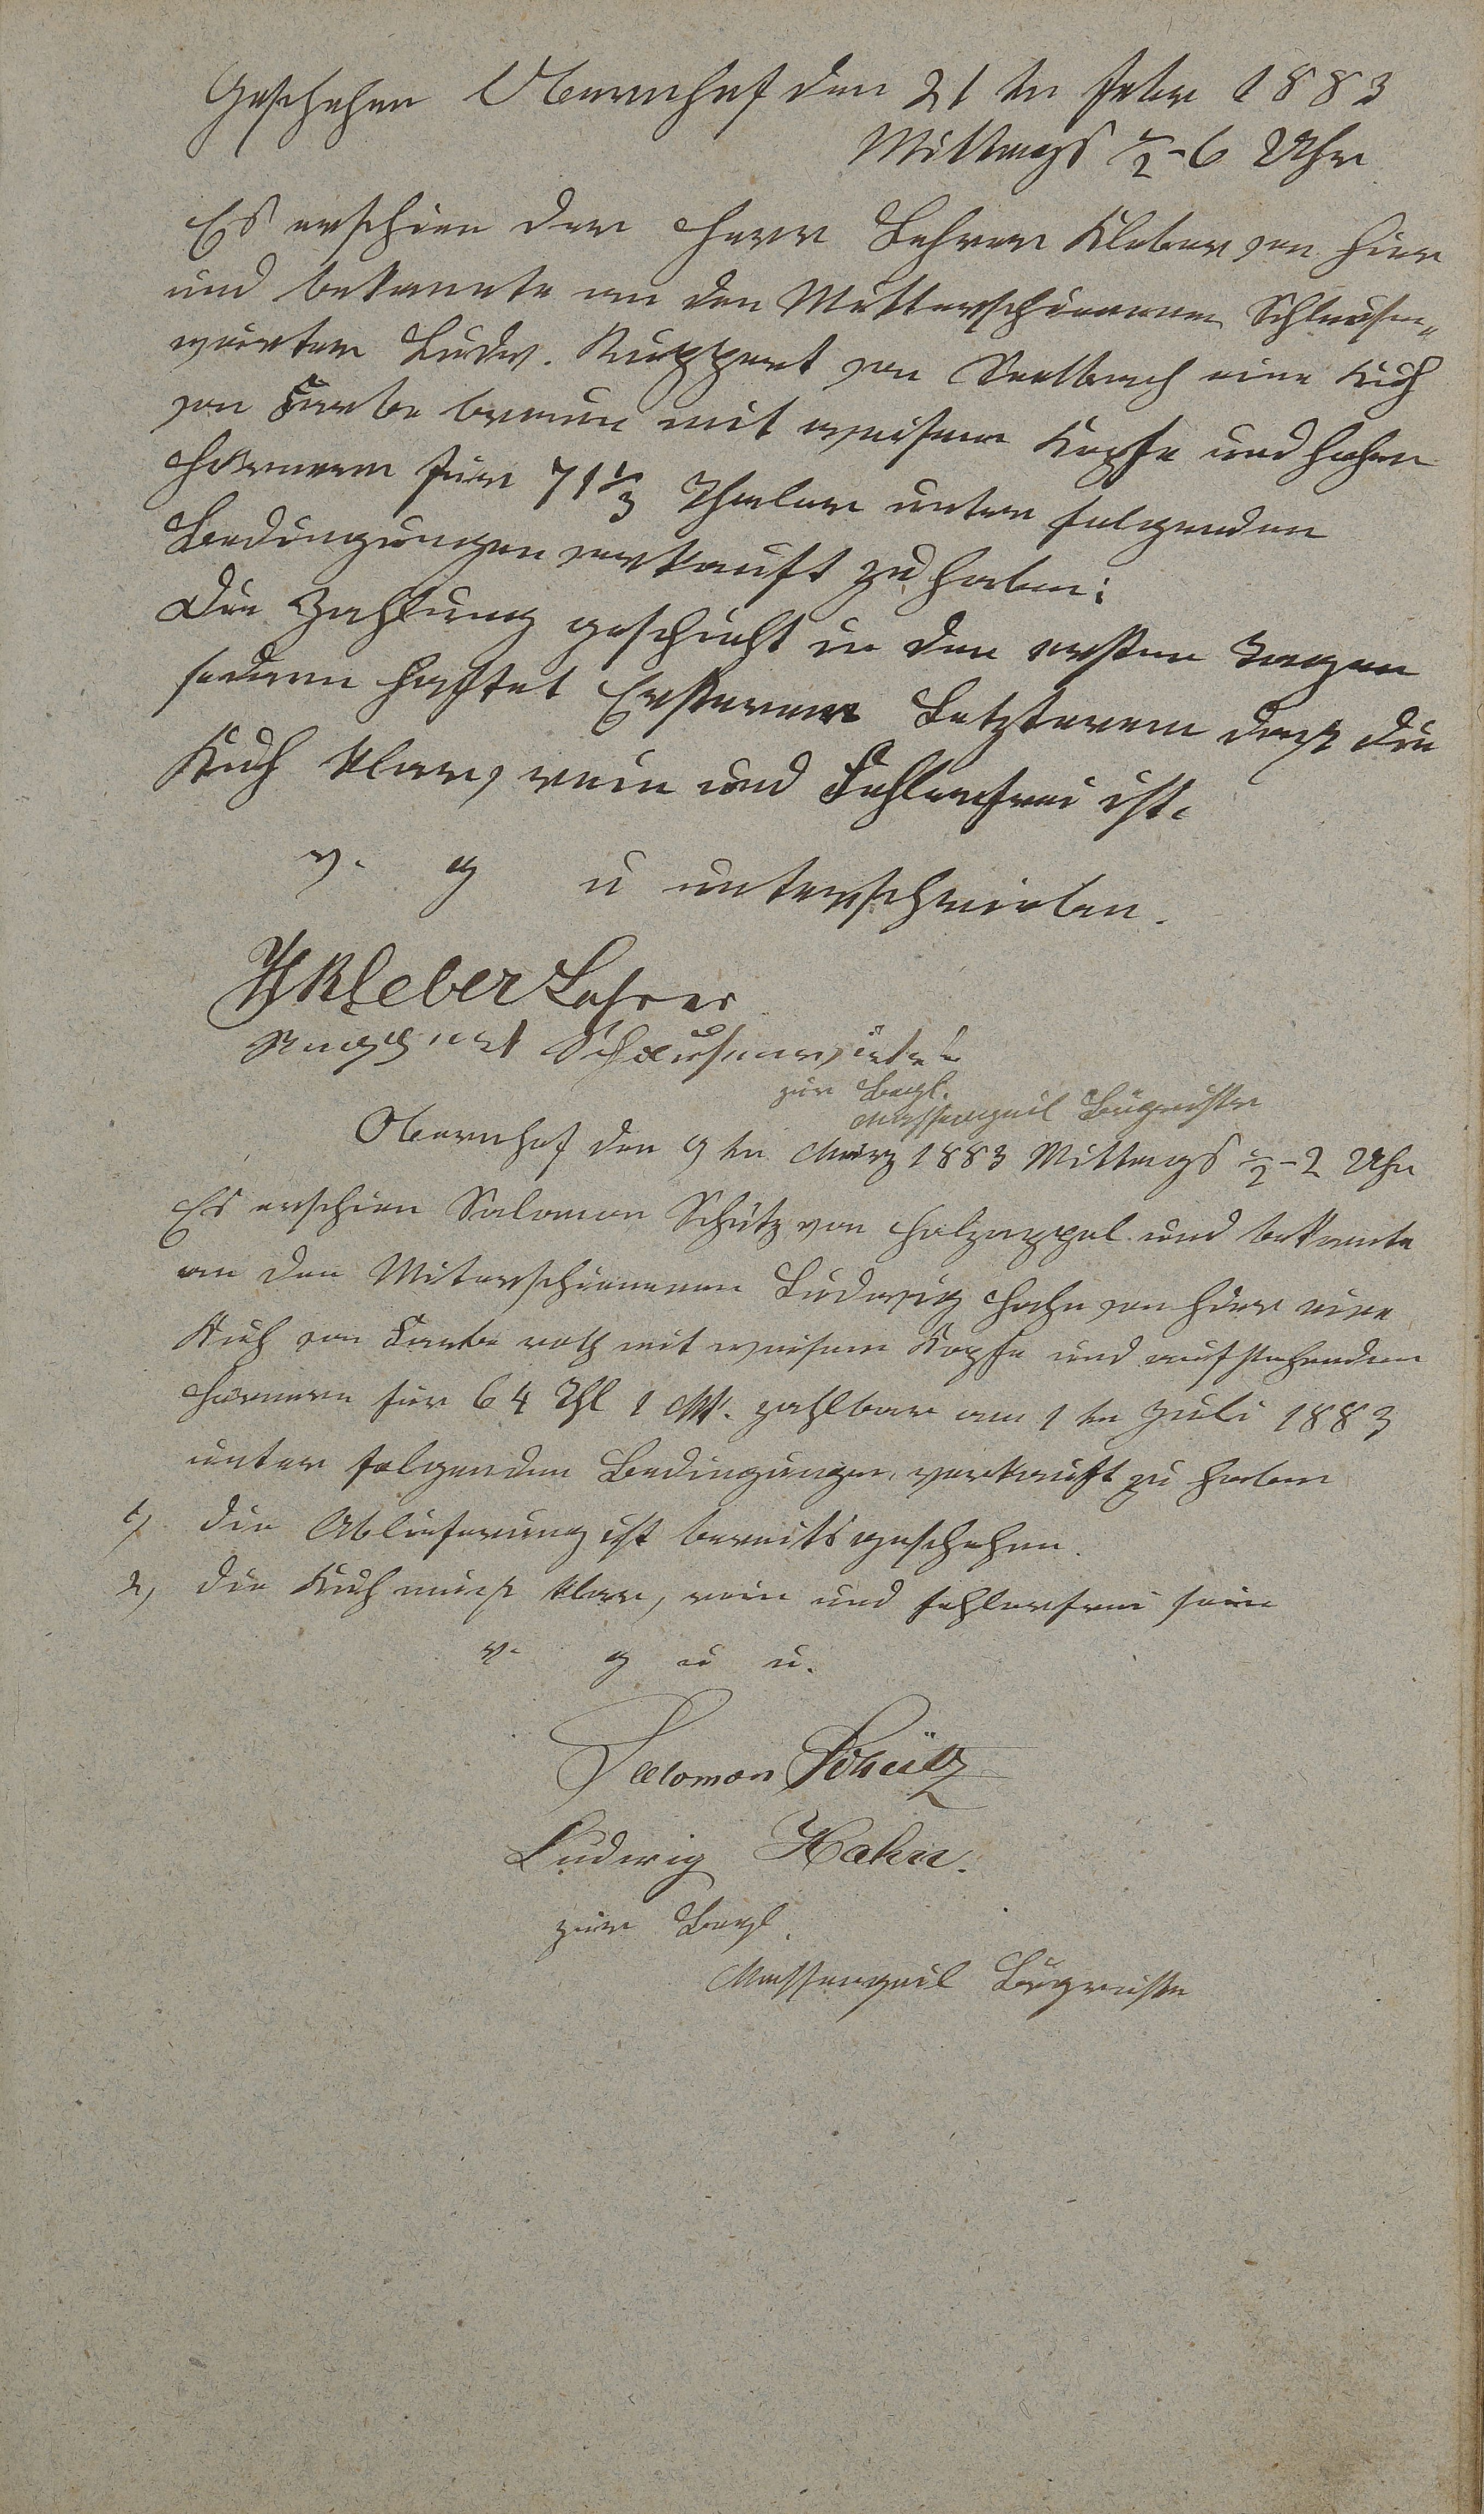 Geschehen Obernhof den 21 ten Febr 1883
Mittags ½-6 Uhr
Es erschien der Herr Lehrer Kleber von hier
und bekannte an den Mitterschienenen Schleusen-
wärter Ludw. Ruppert von Seelbach eine Kuh
von Farbe braun mit weisem Kopfe und hohen
Hörnern für 71⅓ Thaler unter folgenden
Bedingungen verkauft zu haben:
Die Zahlung geschieht in den ersten Tagen
sodann haftet Ersterer Letzterem daß die
Kuh klar, rein und Fehlerfrei ist.
v. g u unterschrieben.
Kleber Lehrer
Ruppert Schleusenwärter
zur Begl.
Massengeil Bürgmstr
Obernhof den 9 ten März 1883 Mittags ½-2 Uhr
Es erschien Salomon Schütz von Holzappel und bekannte
an den Miterschienenen Ludwig Hahn von hier eine
Kuh von Farbe roth mit weisem Kopfe und aufstehenden
Hörnern für 64 Thl 1 M. zahlbar am 1 ten Juli 1883
unter folgenden Bedingungen verkauft zu haben
1) die Ablieferung ist bereits geschehen.
2) die Kuh muß klar, rein und fehlerfrei sein
v. g u u.
Salomon Schütz
Ludwig Hahn.
zur Begl.
Massengeil Bürgmstr